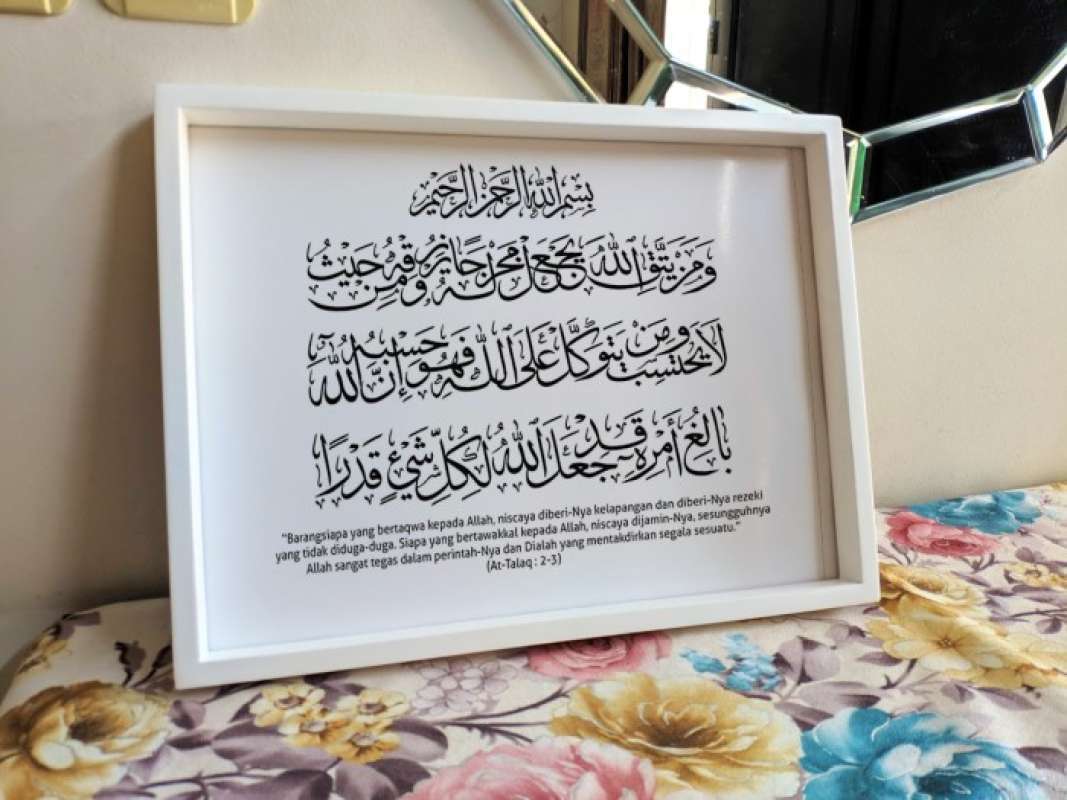 بِسْمِ اللَّهِ الرَّحْمَنِ الرَّحِيمِ
وَمَنْ يَتَّقِ اللَّهَ يَجْعَلْ لَهُ مَخْرَجًا وَيَرْزُقْهُ مِنْ حَيْثُ
لَا يَحْتَسِبُ وَمَنْ يَتَوَكَّلْ عَلَى اللَّهِ فَهُوَ حَسْبُهُ إِنَّ اللَّهَ
بَالِغُ أَمْرِهِ قَدْ جَعَلَ اللَّهُ لِكُلِّ شَيْءٍ قَدْرًا
"Barangsiapa yang bertaqwa kepada Allah, niscaya diberi-Nya kelapangan dan diberi-Nya rezeki
yang tidak diduga-duga. Siapa yang bertawakkal kepada Allah, niscaya dijamin-Nya, sesungguhnya
Allah sangat tegas dalam perintah-Nya dan Dialah yang mentakdirkan segala sesuatu."
(At-Talaq : 2-3)